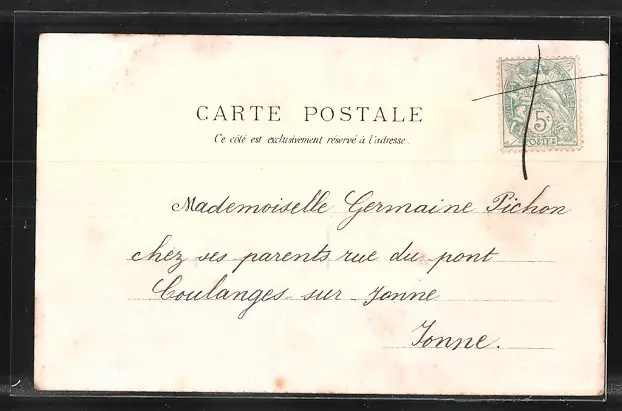 CARTE POSTALE
Ce côté est exclusivement réservé à l'adresse.
5c
POSTES
Mademoiselle Germaine Pichon
chez ses parents rue du pont
Coulanges-sur-Yonne
Yonne.